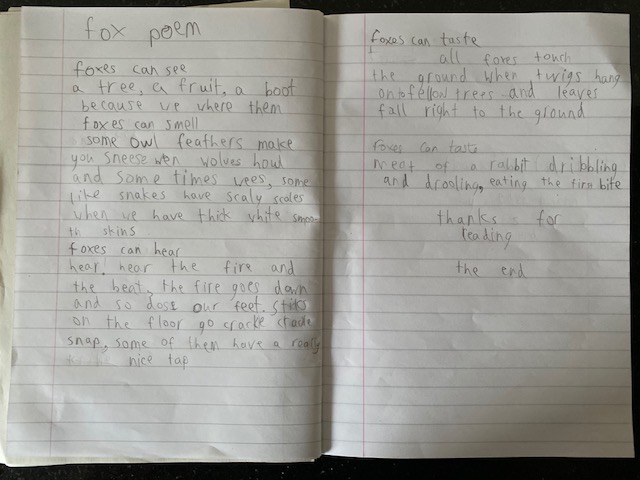 fox poem
foxes can see
a tree, a fruit, a boot
because we where them
foxes can smell
some owl feathers make
you sneese wen wolves howl
and some times wees, some
like snakes have scaly scales
when we have thick white smoo
th skins
foxes can hear
hear, hear the fire and
the beat, the fire goes down
and so dose our feet. stiks
on the floor go cracke cracke
snap, some of them have a really
nice tap
foxes can taste
all foxes touch
the ground when twigs hang
onto fellow trees and leaves
fall right to the ground
foxes can taste
meat of a rabbit dribbling
and drooling, eating the first bite
thanks for
reading
the end